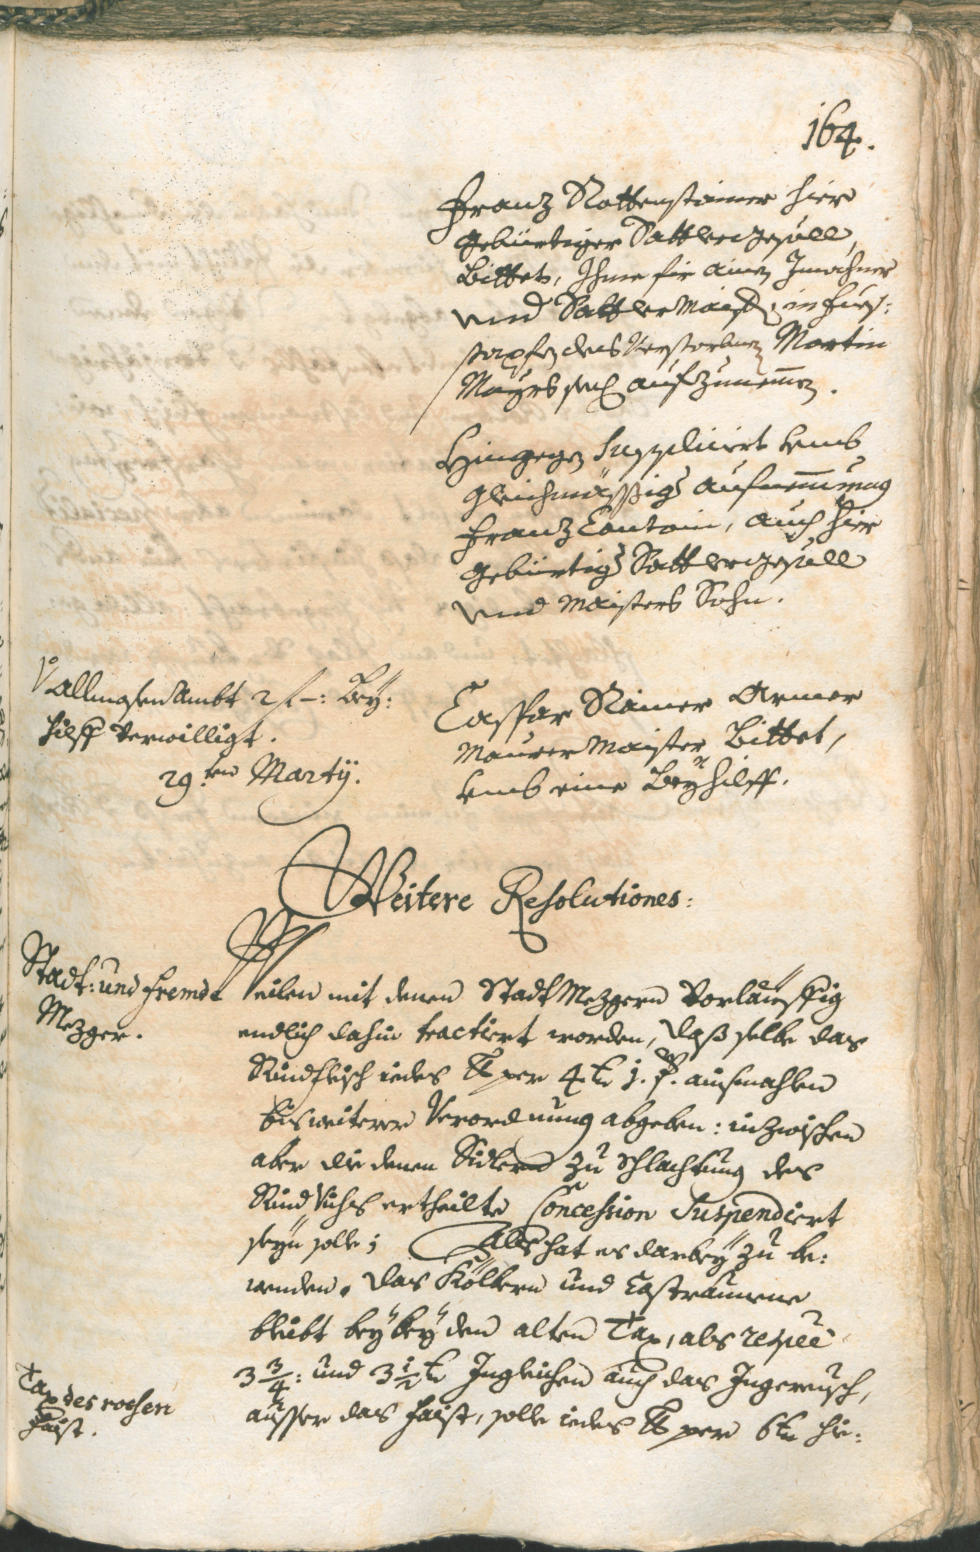 164.
Franz Rottenstainer hier
gebürtiger Sattlergesöll,
Bittet, Ihme für ainen Inwohner
und Sattler Maister in Fues:
stapfen des Verstorbnen Martin
Mayrs seel. aufzunemmen.
Hingegen Suppliciert umb
gleichmässige aufnemmung
Franz Contoin, auch hier
gebürtiger Sattlergesöll
und maisters Sohn.
Vallmosen Ambt 2 f –: Bey:
hilff verwilligt.
29.ten Martÿ.
Caspar Rainer Armer
Maurer Maister Bittet,
umb eine Beyhilff.
Weitere Resolutiones:
Stadt: und fremde
Mezger.
Weilen mit denen Stadt Mezgern Vorläuffig
endlich dahin tractiert worden, daß selbe das
Rindfleisch iedes ℔ per 4. kr 1. f. ausmahlen
bis weiterer Verordnung abgeben: inzwischen
aber die denen Sidlern zu Schlachtung des
Rind Vichs ertheilte Concession Suspendiert
seyn solle; Alß hat es darbey zu be:
wenden. das Kölbern und Castraunene
bleibt bey den alten Tax, als respec.
3 3/4: und 3 1/2 kr Ingleichen auch das Ingereusch,
Tax des rochen
Faist.
ausser das Faist, solle iedes ℔ per 6 kr hie: